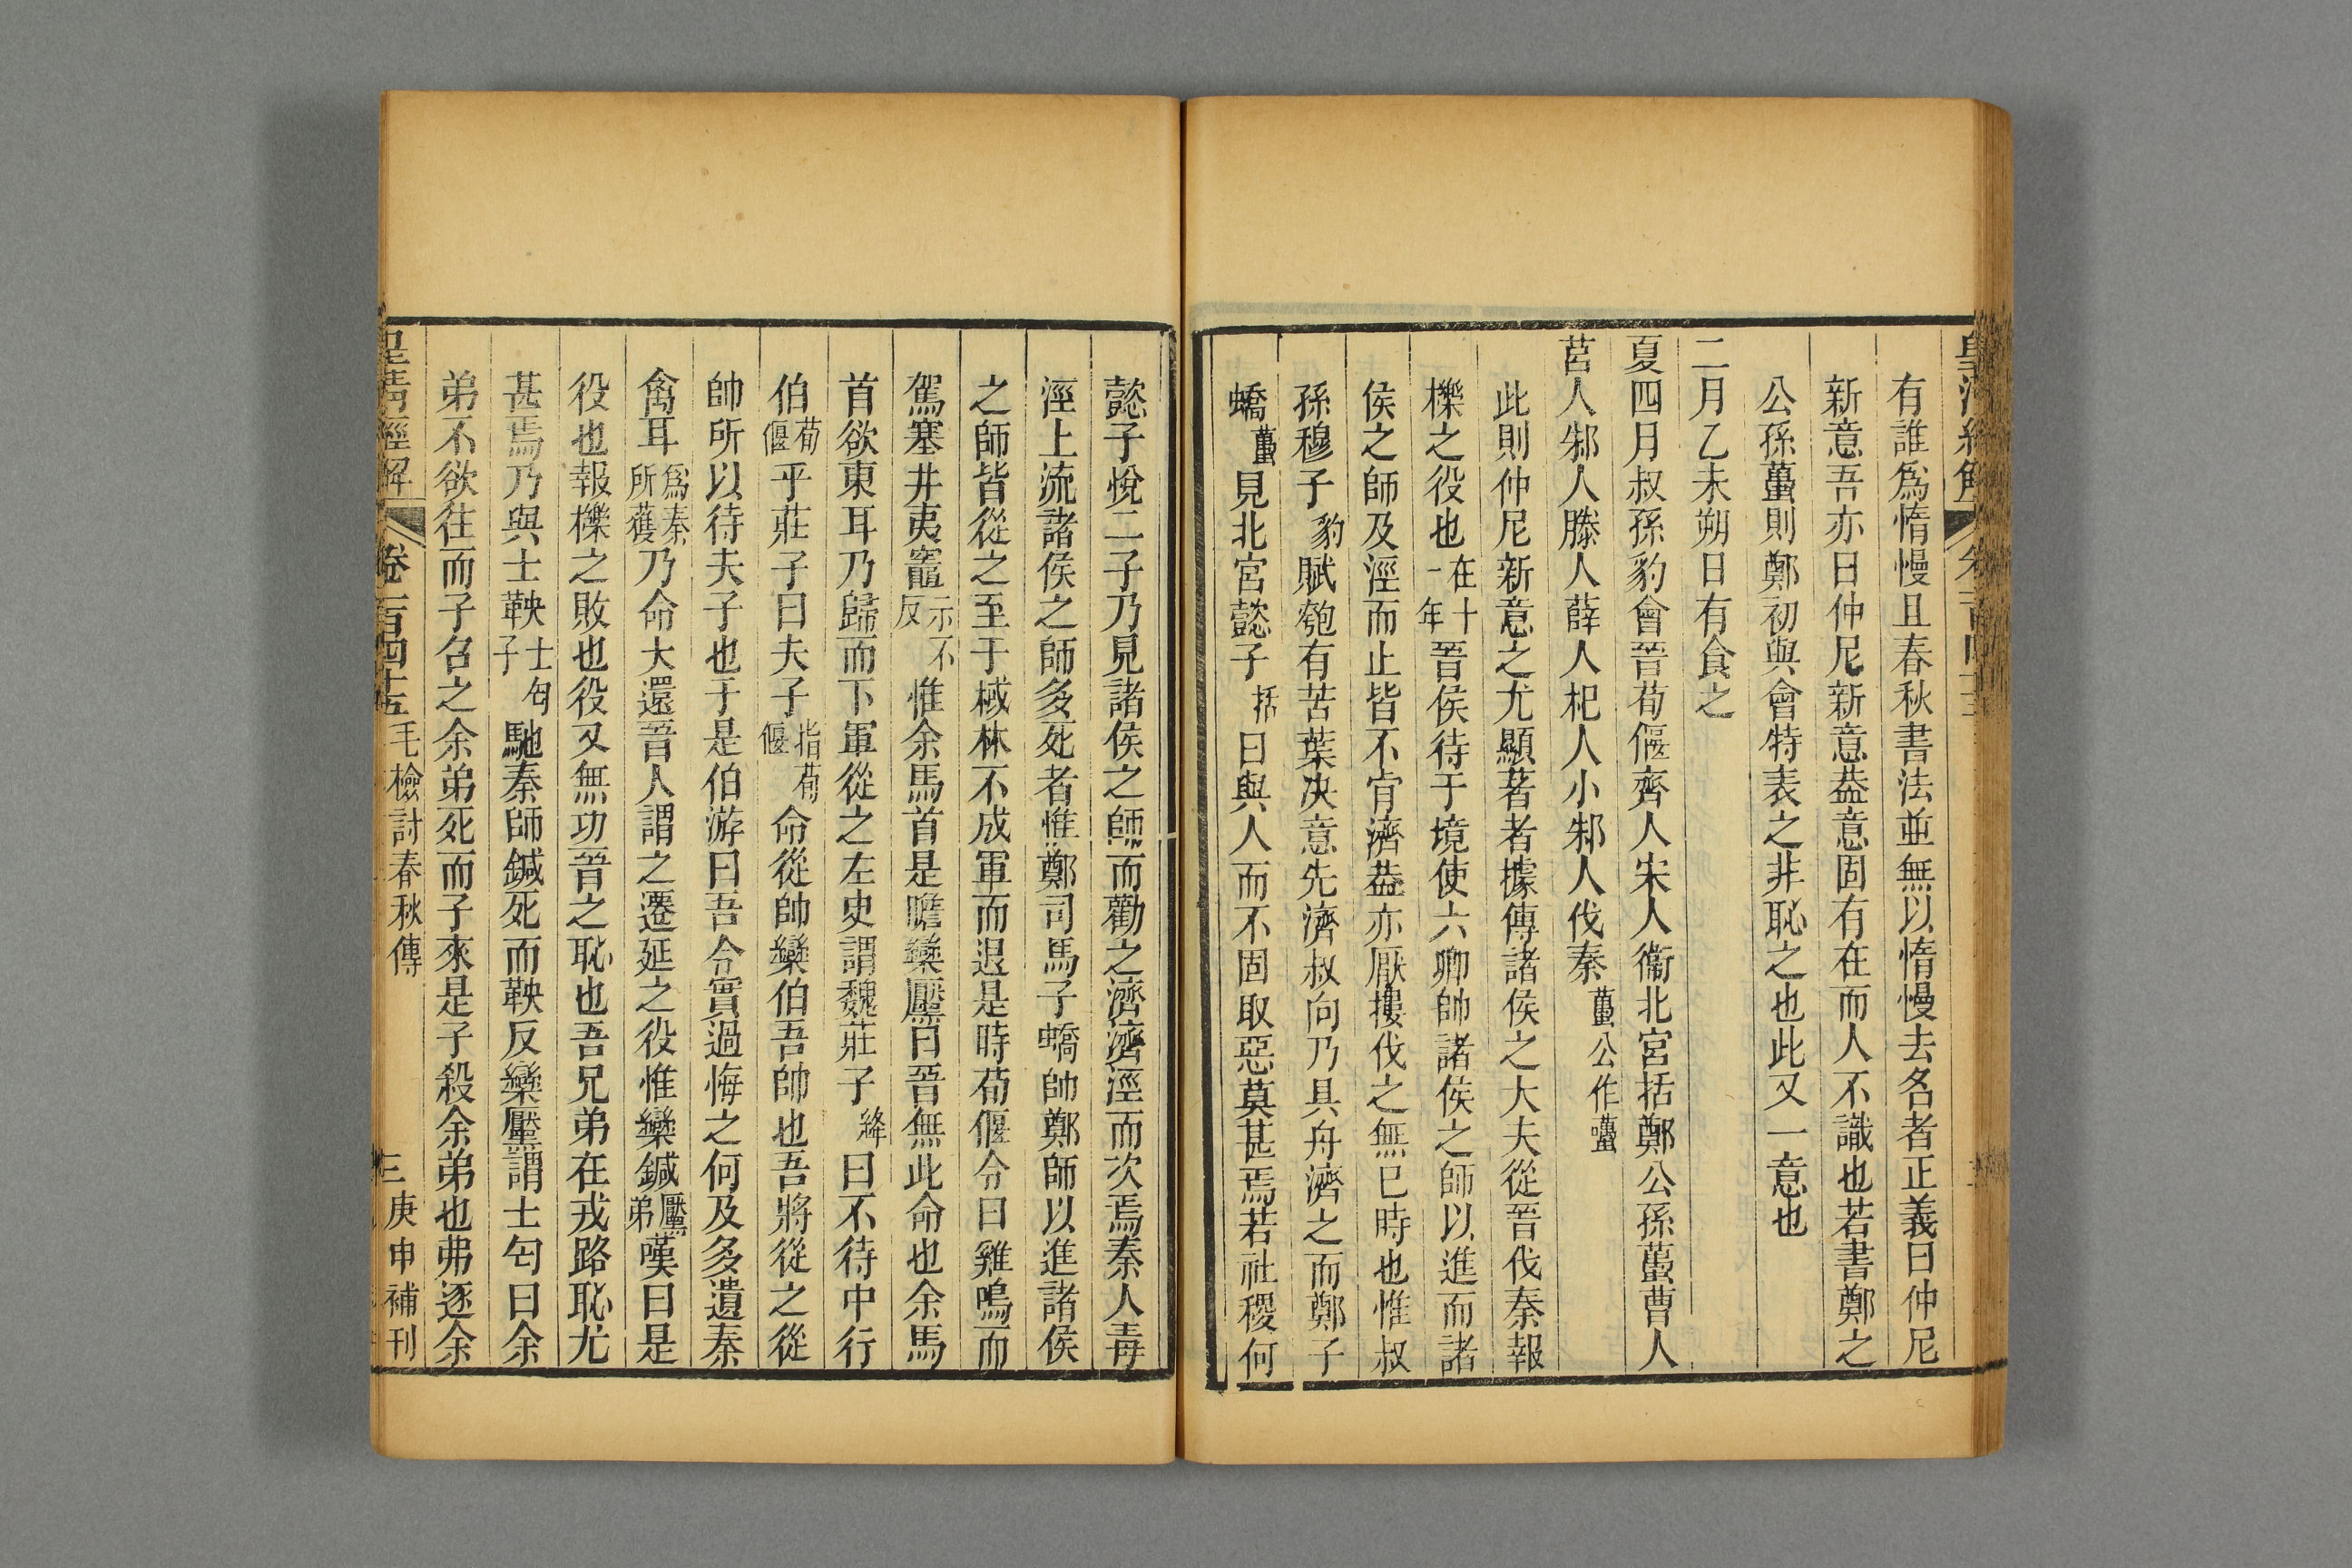 有誰爲惰慢且春秋書法並無以惰慢去名者正義曰仲尼
新意吾亦曰仲尼新意葢意固有在而人不識也若書鄭之
公孫蠆則鄭初與會特表之非恥之也此又一意也
二月乙未朔日有食之
夏四月叔孫豹會晉荀偃齊人宋人衞北宮括鄭公孫蠆曹人
莒人邾人滕人薛人杞人小邾人伐秦蠆公作囆
此則仲尼新意之尤顯著者據傳諸侯之大夫從晉伐秦報
櫟之役也在十一年晉侯待于境使六卿帥諸侯之師以進而諸
侯之師及涇而止皆不肯濟葢亦厭摟伐之無已時也惟叔
孫穆子豹賦匏有苦葉决意先濟叔向乃具舟濟之而鄭子
蟜蠆見北宮懿子括曰與人而不固取惡莫甚焉若社稷何
懿子悅二子乃見諸侯之師而勸之濟濟涇而次焉秦人毒
涇上流諸侯之師多死者惟鄭司馬子蟜帥鄭師以進諸侯
之師皆從之至于棫林不成軍而退是時荀偃令曰雞鳴而
駕塞井夷竈示不反惟余馬首是瞻欒黶曰晉無此命也余馬
首欲東耳乃歸而下軍從之左史謂魏莊子絳曰不待中行
伯荀偃乎莊子曰夫子指荀偃命從帥欒伯吾帥也吾將從之從
帥所以待夫子也于是伯游曰吾令實過悔之何及多遺秦
禽耳爲秦所獲乃命大還晉人謂之遷延之役惟欒鍼黶弟嘆曰是
役也報櫟之敗也役又無功晉之恥也吾兄弟在戎路恥尤
甚焉乃與士鞅士匄子馳秦師鍼死而鞅反欒黶謂士匄曰余
弟不欲往而子召之余弟死而子來是子殺余弟也弗逐余
皇清經解 卷一百四十五 毛檢討春秋傳 三 庚申補刊